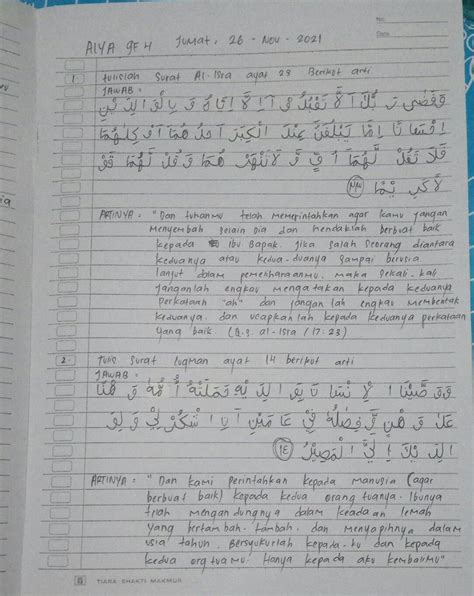 No.
Date
ALYA 9F4 Jumat, 26 - Nov - 2021
1 tulislah Surat Al-Isra ayat 23 Berikut arti
JAWAB :
وَقَضٰى رَبُّكَ اَلَّا تَعْبُدُوْٓا اِلَّآ اِيَّاهُ وَ بِالْوَالِدَيْنِ
اِحْسَانًا اِمَّا يَبْلُغَنَّ عِنْدَكَ الْكِبَرَ اَحَدُهُمَآ اَوْ كِلٰهُمَا
فَلَا تَقُلْ لَّهُمَآ اُفٍّ وَّلَا تَنْهَرْ هُمَا وَقُلْ لَّهُمَا قَوْ
لًا كَرِيْمًا
ARTINYA : "Dan tuhanmu telah memerintahkan agar kamu jangan
menyembah selain Dia dan hendaklah berbuat baik
kepada Ibu Bapak. Jika salah seorang diantara
keduanya atau kedua-duanya sampai berusia
lanjut dalam pemeliharaanmu, maka sekali-kali
janganlah engkau mengatakan kepada keduanya
perkataan "ah" dan janganlah engkau membentak
keduanya, dan ucapkanlah kepada keduanya perkataan
yang baik. (Q.s. al-Isra /17:23)
2. Tulis Surat luqman ayat 14 berikut arti
JAWAB :
وَوَصَّيْنَا الْاِنْسَانَ بِوَالِدَيْهِ حَمَلَتْهُ اُمُّهٗ وَهْنًا
عَلٰى وَهْنٍ وَّفِصَالُهٗ فِيْ عَامَيْنِ اَنِ اشْكُرْ لِيْ وَلِوَ
الِدَيْكَ اِلَيَّ الْمَصِيْرُ ١٤
ARTINYA : "Dan kami perintahkan kepada manusia (agar
berbuat baik) kepada kedua orang tuanya. Ibunya
telah mengandungnya dalam keadaan lemah
yang bertambah-tambah, dan menyapihnya dalam
usia tahun. Bersyukurlah kepada-ku dan kepada
kedua orgtuamu. Hanya kepada aku kembalimu"
TIARA BHAKTI MAKMUR